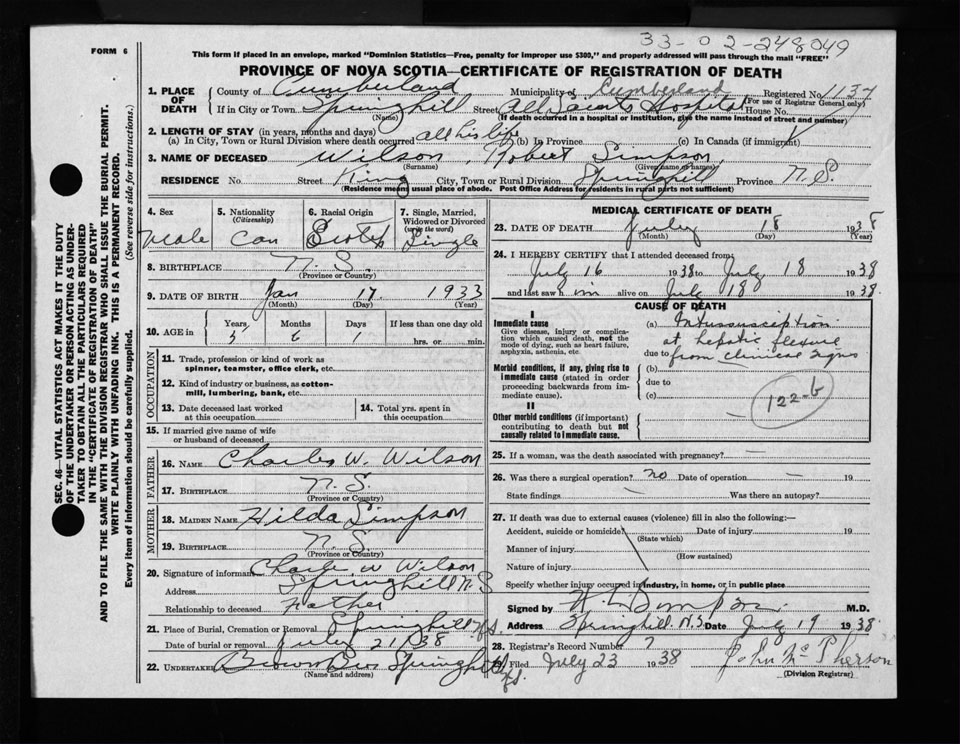 33-02-248049
FORM 6
This form if placed in an envelope, marked "Dominion Statistics—Free, penalty for improper use $300," and properly addressed will pass through the mail "FREE"
PROVINCE OF NOVA SCOTIA—CERTIFICATE OF REGISTRATION OF DEATH
1. PLACE OF DEATH County of Cumberland Municipality of Cumberland Registered No. 1137
(For use of Registrar General only)
If in City or Town Springhill Street All Saints Hospital House No.
(Name) (If death occurred in a hospital or institution, give the name instead of street and number)
2. LENGTH OF STAY (in years, months and days)
(a) In City, Town or Rural Division where death occurred all his life (b) In Province (c) In Canada (if immigrant)
3. NAME OF DECEASED Wilson, Robert Simpson
(Surname) (Given name or names)
RESIDENCE No. Street King City, Town or Rural Division Springhill Province N.S.
(Residence means usual place of abode. Post Office Address for residents in rural parts not sufficient)
SEC. 46—VITAL STATISTICS ACT MAKES IT THE DUTY
OF THE UNDERTAKER OR PERSON ACTING AS UNDER-
TAKER TO OBTAIN ALL THE PARTICULARS REQUIRED
IN THE "CERTIFICATE OF REGISTRATION OF DEATH"
AND TO FILE THE SAME WITH THE DIVISION REGISTRAR WHO SHALL ISSUE THE BURIAL PERMIT.
WRITE PLAINLY WITH UNFADING INK. THIS IS A PERMANENT RECORD.
Every item of information should be carefully supplied. (See reverse side for instructions.)
4. Sex 5. Nationality (Citizenship) 6. Racial Origin 7. Single, Married, Widowed or Divorced (write the word)
Male Can Scotch Single
8. BIRTHPLACE N.S.
(Province or Country)
9. DATE OF BIRTH Jan 17 1933
(Month) (Day) (Year)
10. AGE in Years Months Days If less than one day old
5 6 1 hrs. or min.
OCCUPATION
11. Trade, profession or kind of work as
spinner, teamster, office clerk, etc.
12. Kind of industry or business, as cotton-
mill, lumbering, bank, etc.
13. Date deceased last worked
at this occupation
14. Total yrs. spent in
this occupation
15. If married give name of wife
or husband of deceased
FATHER
16. NAME Charles W. Wilson
17. BIRTHPLACE N.S.
(Province or Country)
MOTHER
18. MAIDEN NAME Hilda Simpson
19. BIRTHPLACE N.S.
(Province or Country)
20. Signature of informant Charles W Wilson
Address Springhill N.S
Relationship to deceased Father
21. Place of Burial, Cremation or Removal Springhill N.S.
Date of burial or removal July 21/38
22. UNDERTAKER Brown Bros Springhill N.S.
(Name and address)
MEDICAL CERTIFICATE OF DEATH
23. DATE OF DEATH July 18 1938
(Month) (Day) (Year)
24. I HEREBY CERTIFY that I attended deceased from
July 16 1938 to July 18 1938
and last saw him alive on July 18 1938.
CAUSE OF DEATH
I
Immediate cause
Give disease, injury or complica-
tion which caused death, not the
mode of dying, such as heart failure,
asphyxia, asthenia, etc.
(a) Intussusception
at hepatic flexure
due to from clinical signs
Morbid conditions, if any, giving rise to
immediate cause (stated in order
proceeding backwards from im-
mediate cause).
(b)
due to
(c)
122-b
II
Other morbid conditions (if important)
contributing to death but not
causally related to immediate cause.
25. If a woman, was the death associated with pregnancy?
26. Was there a surgical operation? no Date of operation 19
State findings Was there an autopsy?
27. If death was due to external causes (violence) fill in also the following:—
Accident, suicide or homicide Date of injury 19
(State which)
Manner of injury
(How sustained)
Nature of injury
Specify whether injury occurred in industry, in home, or in public place
Signed by M.D.
Address Springhill N.S. Date July 19 1938.
28. Registrar's Record Number 7
29. Filed July 23 1938 John McPherson
(Division Registrar)